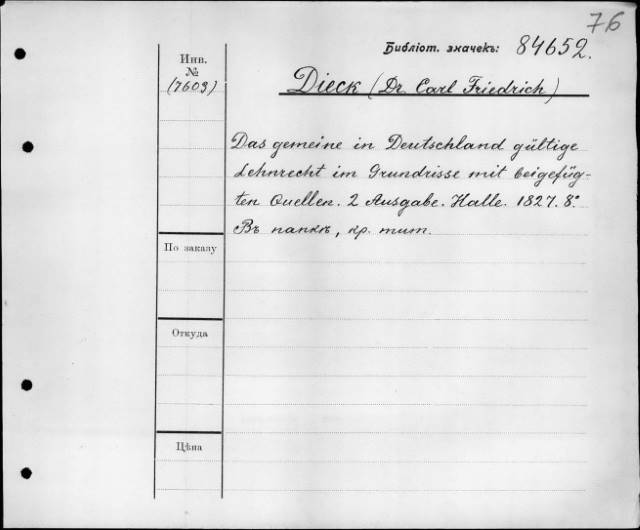 76
Библіот. значекъ: 84652.
Инв.
№
(7603)
Dieck (Dr Carl Friedrich)
Das gemeine in Deutschland gültige
Lehnrecht im Grundrisse mit beigefüg-
ten Quellen. 2 Ausgabe. Halle. 1827. 8º
Въ папкѣ, кр. тит.
По заказу
Откуда
Цѣна